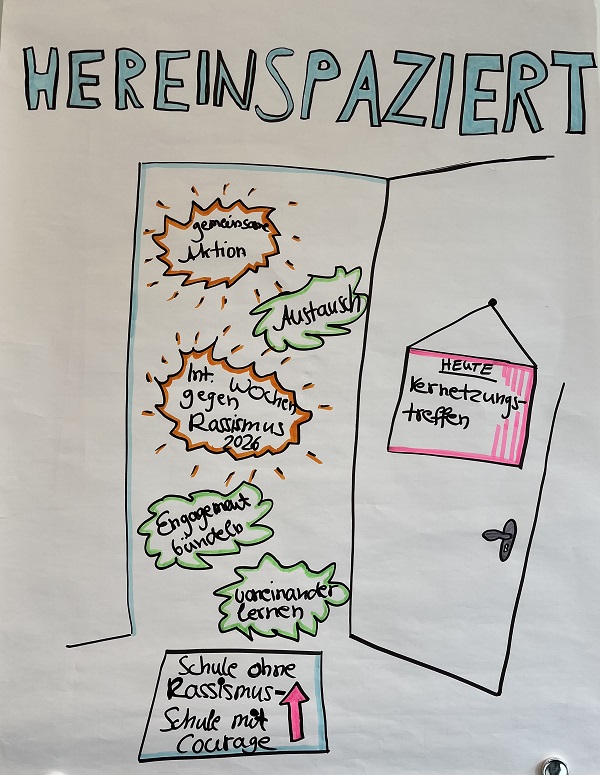 HEREINSPAZIERT
gemeinsame
Aktion
Austausch
Int. Wochen
gegen
Rassismus
2026
Engagement
bündeln
voneinander
lernen
HEUTE
Vernetzungs-
treffen
Schule ohne
Rassismus-
Schule mit
Courage